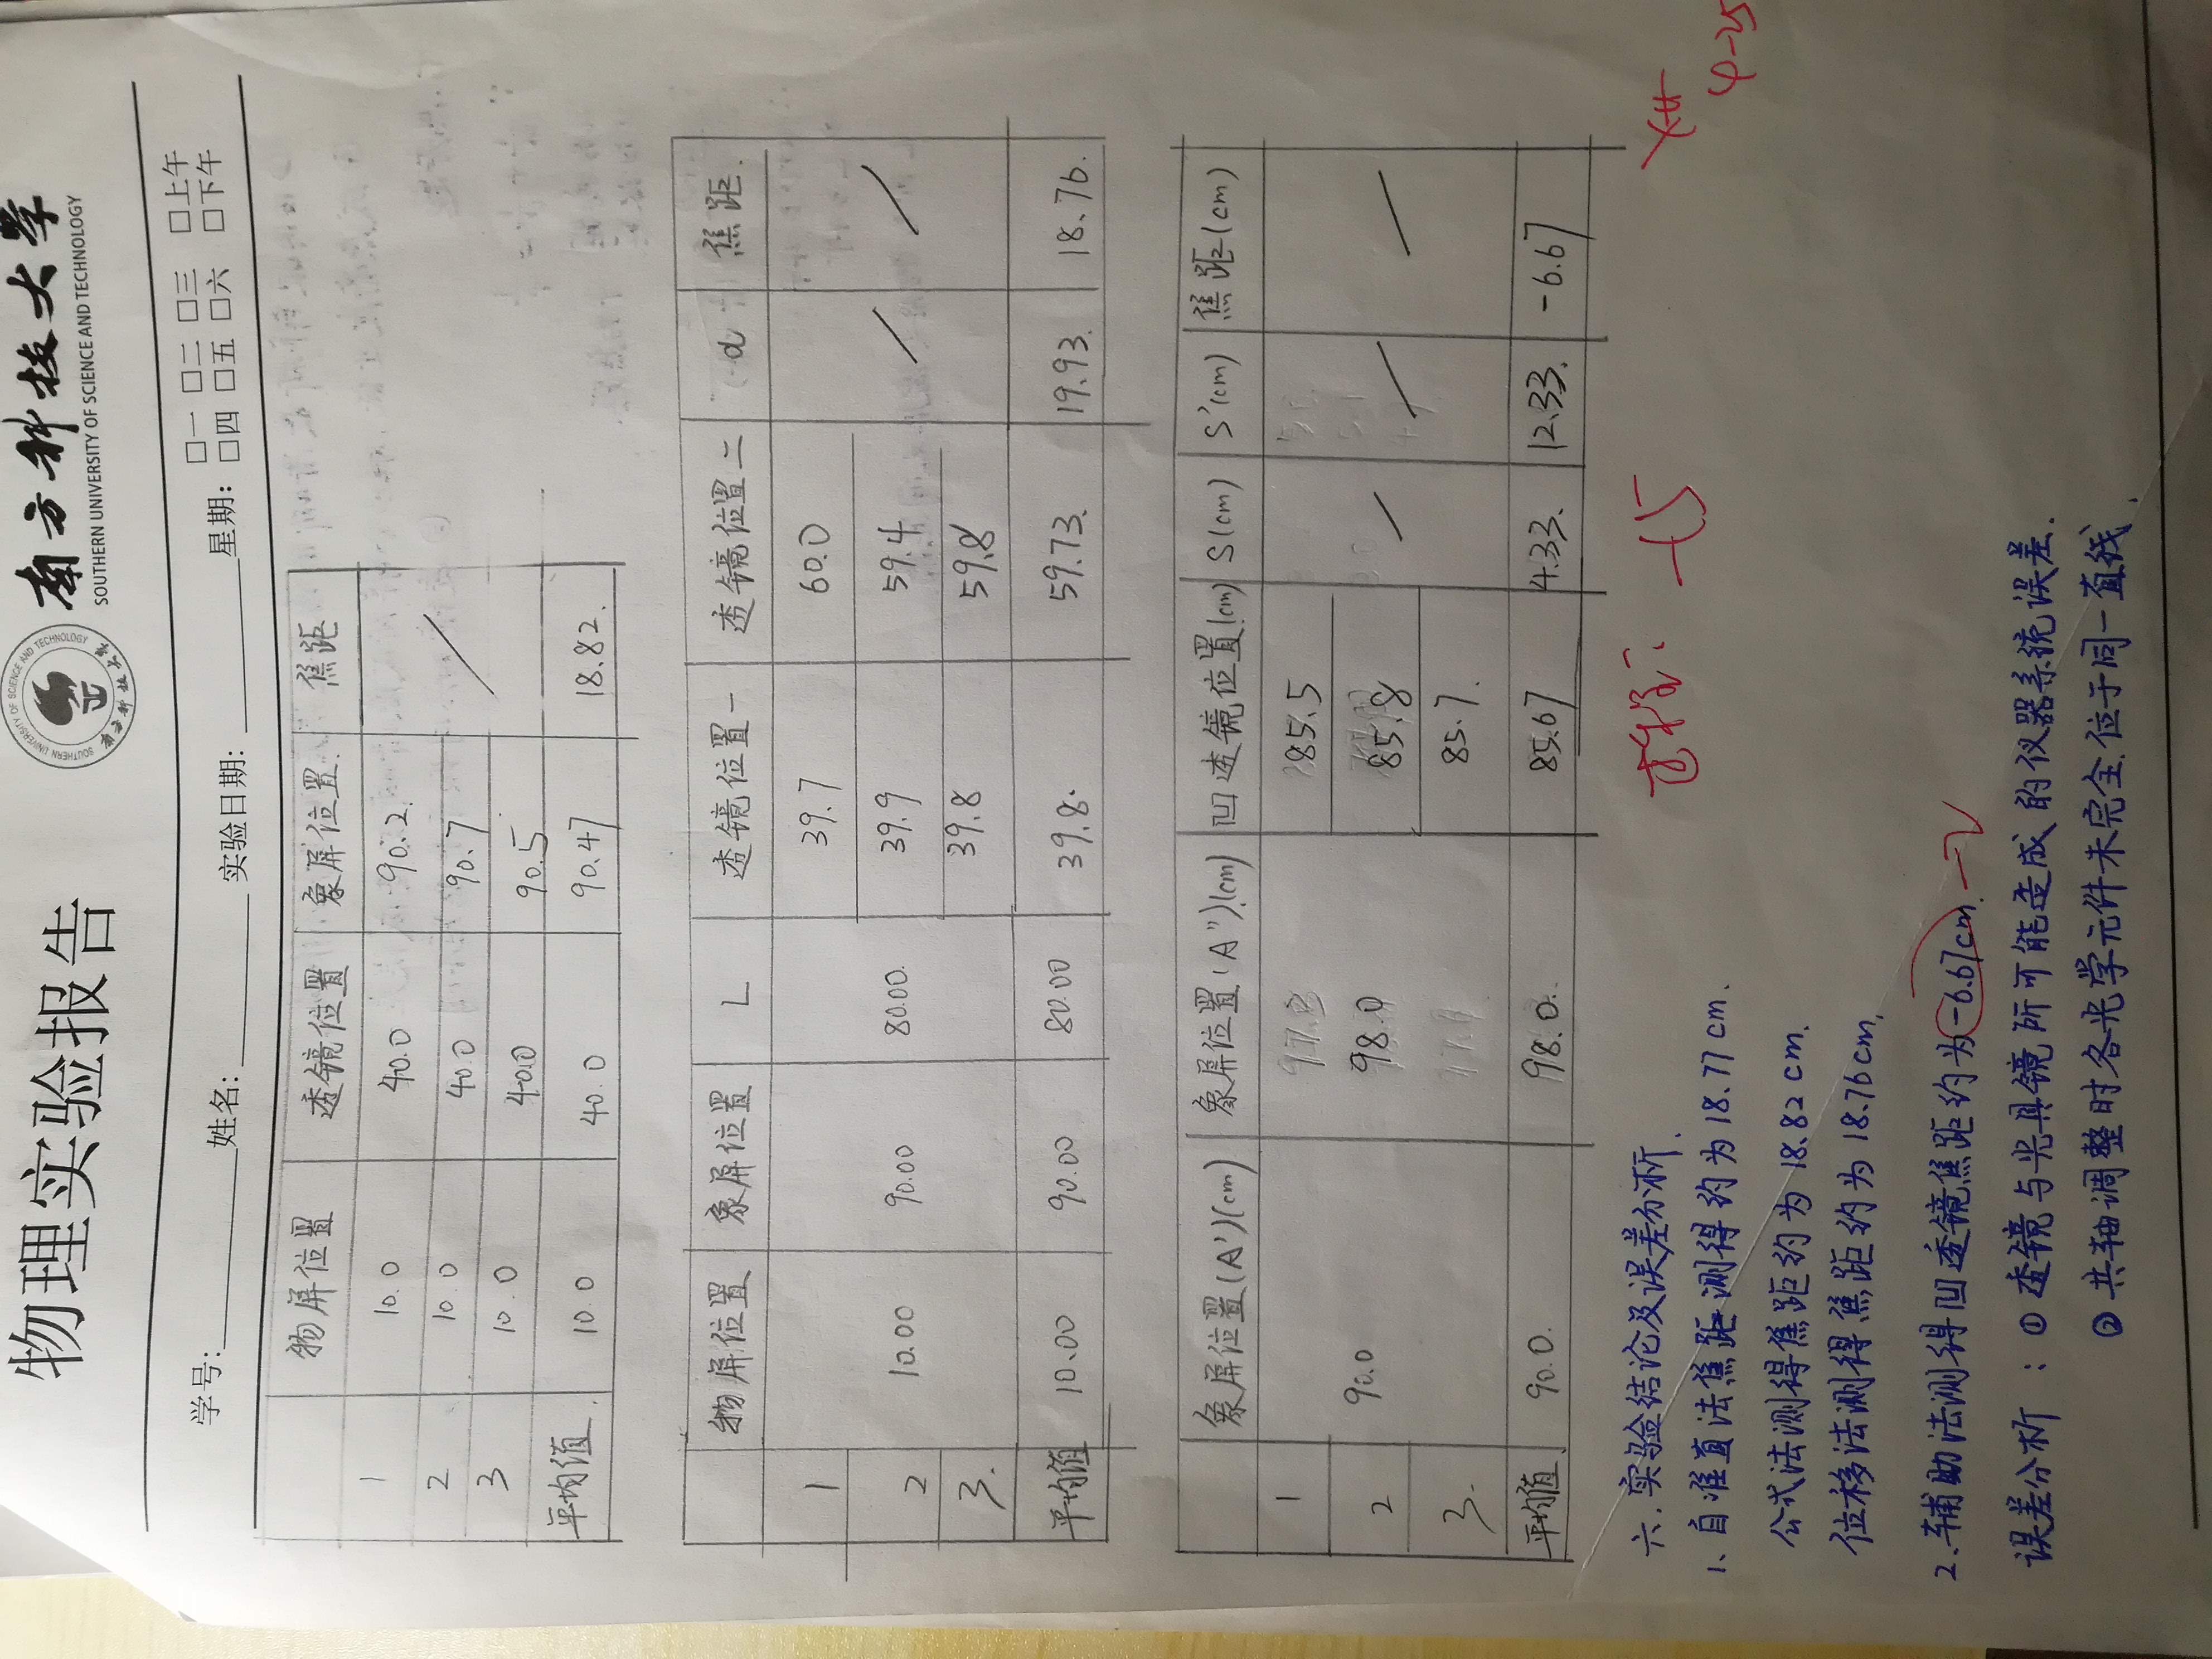 物理实验报告
SOUTHERN UNIVERSITY OF SCIENCE AND TECHNOLOGY
南方科技大学
南方科技大学
SOUTHERN UNIVERSITY OF SCIENCE AND TECHNOLOGY
学号: 姓名: 实验日期: 星期: □一 □二 □三 □上午
□四 □五 □六 □下午
物屏位置 透镜位置 象屏位置. 焦距
1 10.0 40.0 90.2.
2 10.0 40.0 90.7
3 10.0 40.0 90.5
平均值. 10.0 40.0 90.47 18.82.
物屏位置 象屏位置 L 透镜位置一 透镜位置二 d 焦距.
1 39.7 60.0
2 10.00 90.00 80.00. 39.9 59.4
3. 39.8 59.8
平均值 10.00 90.00 80.00 39.8. 59.73. 19.93. 18.76.
象屏位置(A')(cm) 象屏位置(A")(cm) 凹透镜位置(cm) S(cm) S'(cm) 焦距(cm)
1 85.5
2 90.0 98.0 85.8
3. 85.7.
平均值 90.0. 98.0. 85.67 4.33. 12.33. -6.67
六.实验结论及误差分析.
过程? -15
4-25
1、自准直法焦距测得约为18.77cm.
公式法测得焦距约为18.82cm.
位移法测得焦距约为18.76cm.
2.辅助法测得凹透镜焦距约为-6.67cm. -2
误差分析：①透镜与光具镜所可能造成的仪器系统误差.
②共轴调整时各光学元件未完全位于同一直线.